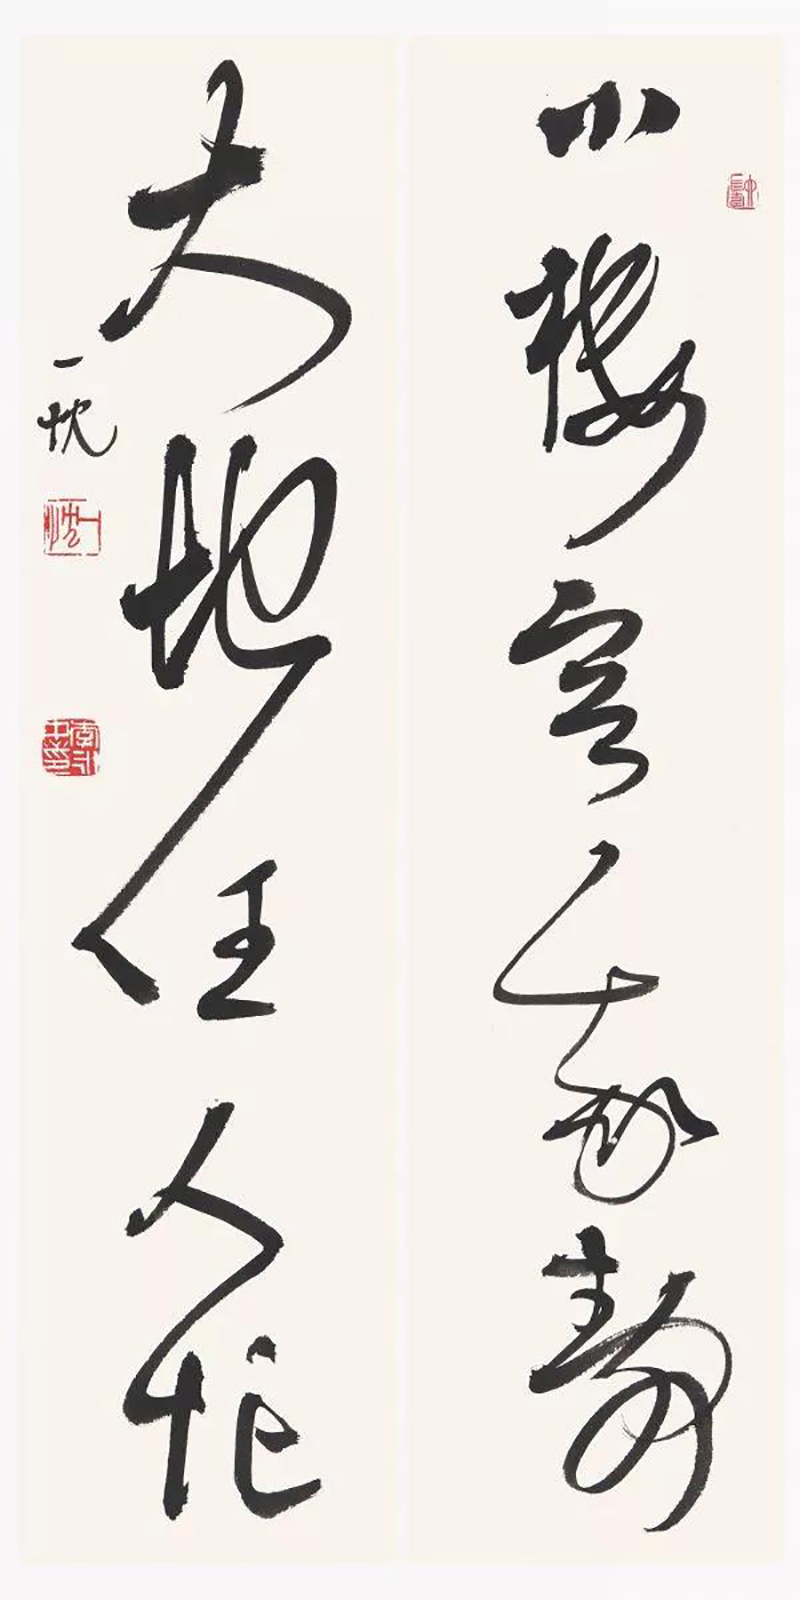 小楼容我静
大地任人忙
一忱